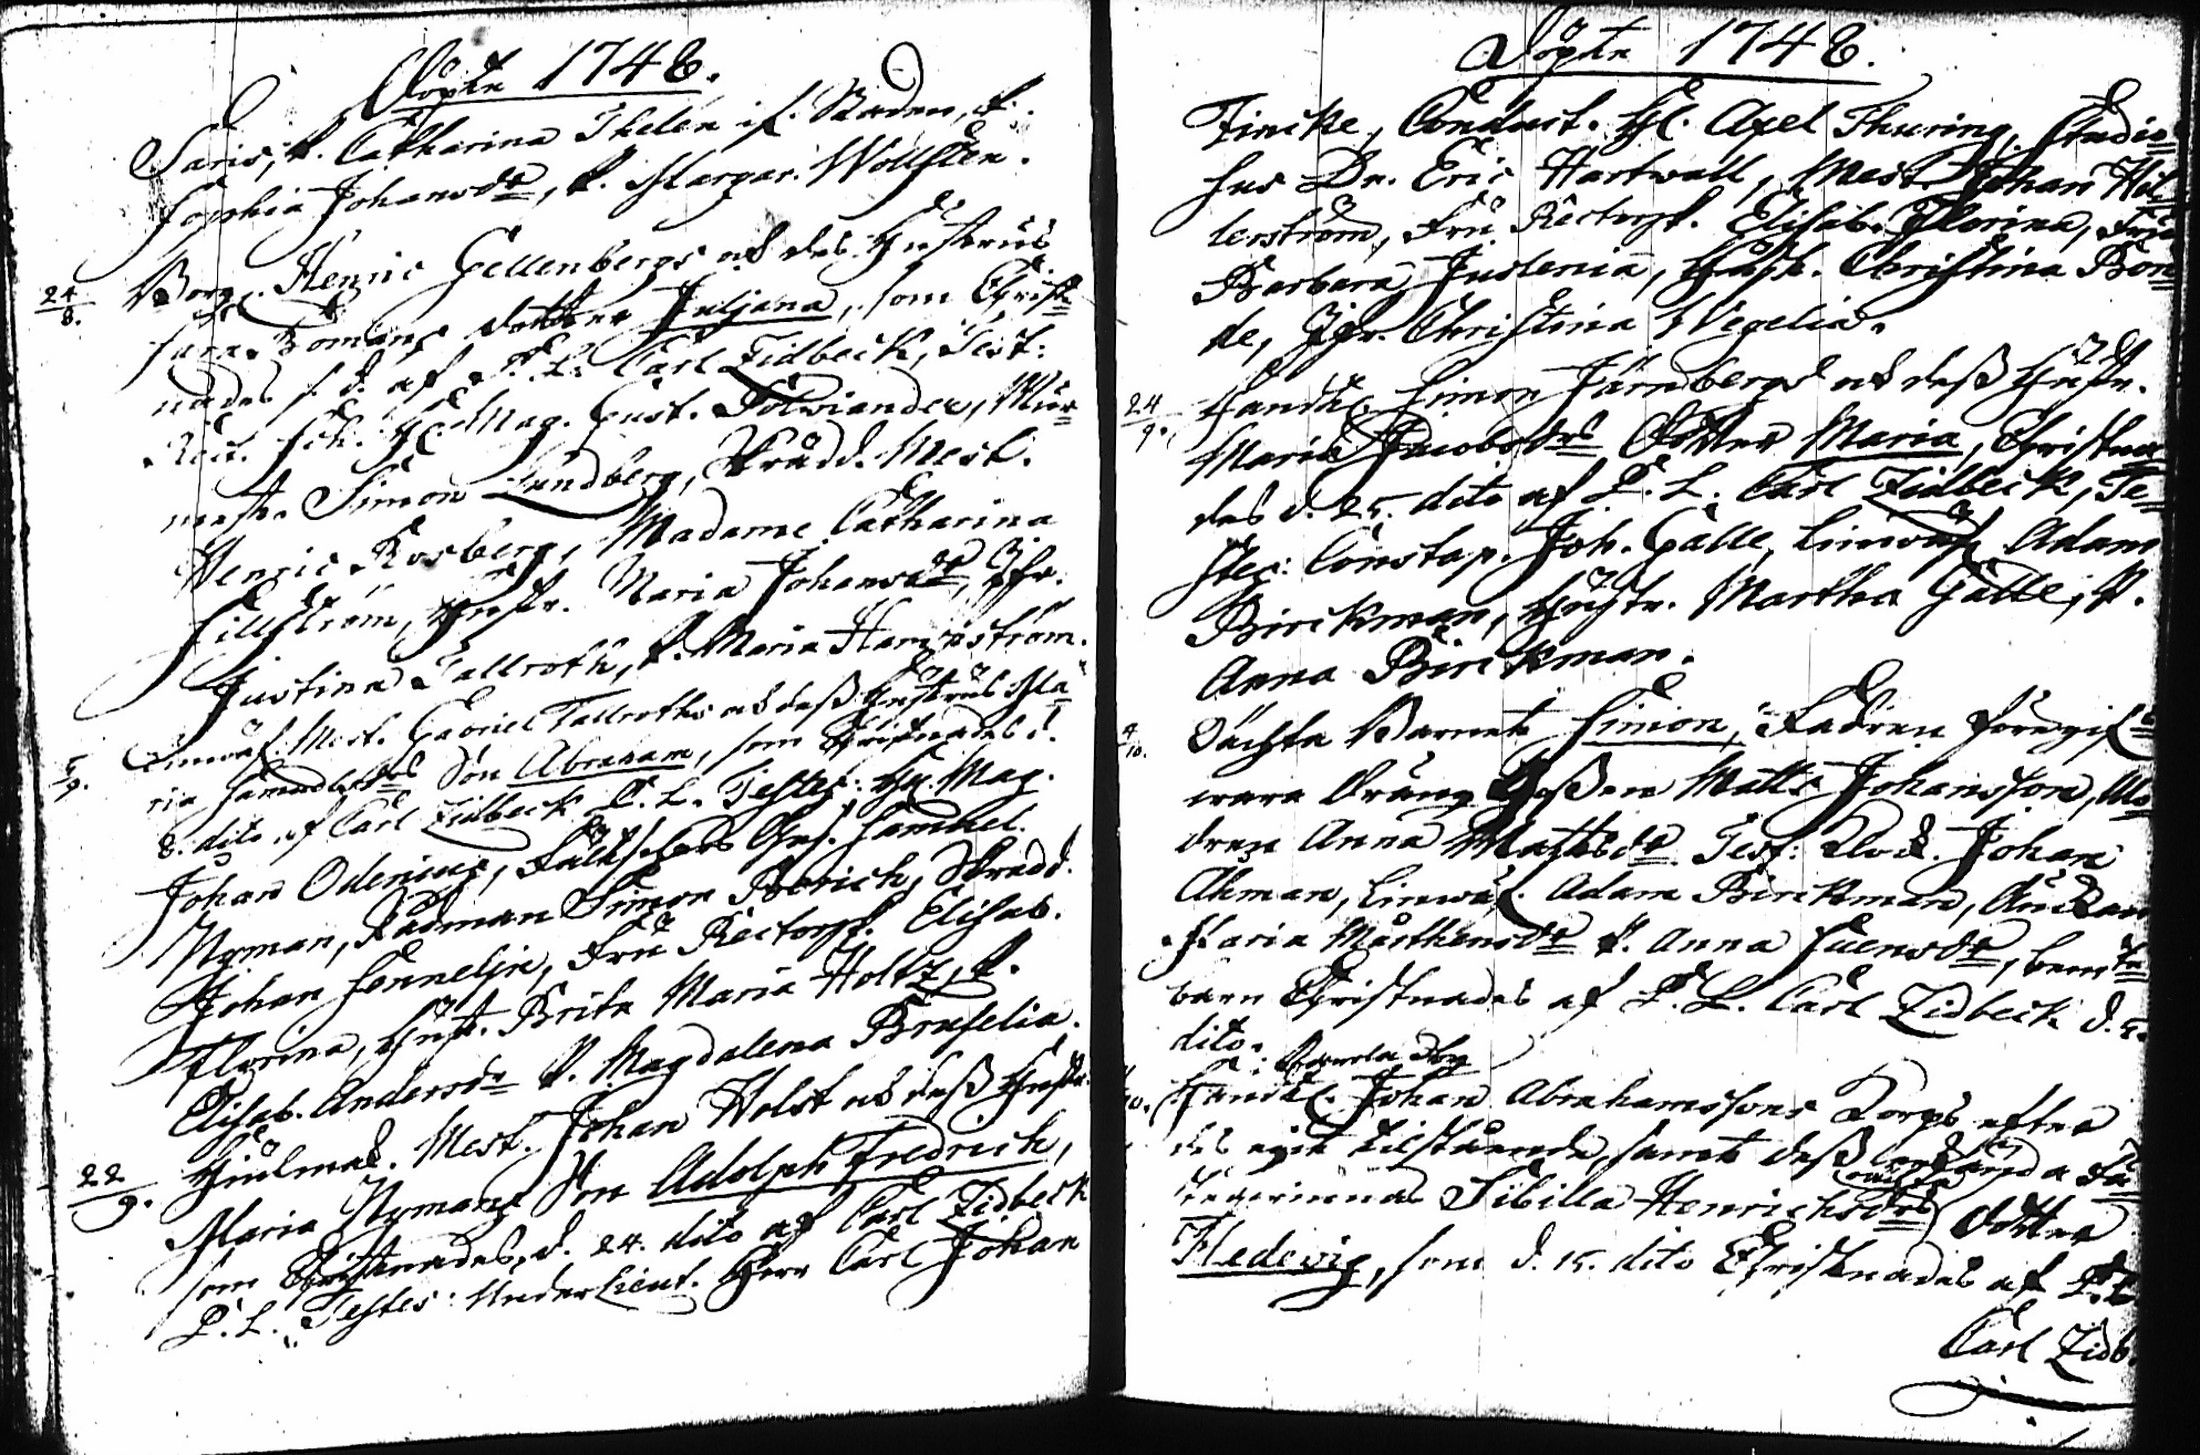 Döpte 1748.
Saris, P. Catharina Thelen if. Staden, P.
Sophia Johansdr, P. Margar. Wollsten.
24/8. Borg. Henric Gellenbergs ok des Hustrus
Bomans dotter Juljana, som Christ=
nades d. af P. L. Carl Zidbeck, Test:
Rect. Sch. H. Mag. Gust. Polviander, Mur=
mest. Simon Lundberg, Skrädd. Mest.
Henric Rosberg, Madame Catharina
Sillström, Hustr. Maria Johansdr, Jfr.
Justina Tallroth, P. Maria Hammström.
5/9. Linwäf. Mest. Gabriel Tallroths ok dess Hustrus Ma=
ria Samuelsdrs Son Abraham, som Christnades d.
8. dito af Carl Zidbeck P. L. Testes: H. Mag.
Johan Odenius, Fältschers Ges. Samuel
Nyman, Rådman Simon Borich, Skrädd.
Johan Sennelin, Fru Rectorsk. Elisab.
Florina, Hust. Brita Maria Holtz, P.
Elisab. Andersdr P. Magdalena Bruselia.
22/9. Hjulmak. Mest. Johan Holst ok dess Hustr.
Maria Nymans Son Adolph Fredrich,
som Christnades, d. 24. dito af Carl Zidbeck
P. L. Testes: Under Lieut. Herr Carl Johan
Döpte 1748.
Fincke, Conduct. H. Axel Thuring, Studio=
sus Dn. Eric Hartwall, Mest. Johan Hel=
lerström, Fru Rectorsk. Elisab. Florina, Fru
Barbara Juslenia, Hust. Christina Bon=
de, Jfr. Christina Wegelia.
24/9. Handl. Simon Järnbergs ok dess Hustr.
Maria Jacobsdrs Dotter Maria, Christna=
des d. 25. dito af P. L. Carl Zidbeck, Te=
stes: Constap. Joh. Galle, Linwäf. Adam
Birckman, Hustr. Martha Galle, P.
Anna Birckman.
4/10. Oächta Barnet Simon, Fadren föregifs
wara Dräng Gossen Matts Johansson, Mo=
dren Anna Mattsdr. Test: Klock. Johan
Ahman, Linwäf. Adam Birckman, Änckan
Maria Mårthensdr P. Anna Suensdr, bem:te
barn Christnades af P. L. Carl Zidbeck d. 5.
dito.
10. Handl. Johan Abrahamssons Torps efter
des eget tilstående, samt dess
Sibilla Henrichsdrs oächta Dotter
Hedevig, som d. 15. dito Christnades af P. L.
Carl Zidb.